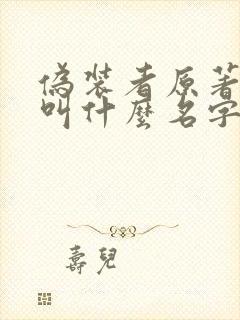 偽裝者原著
叫什麼名字
壽兒